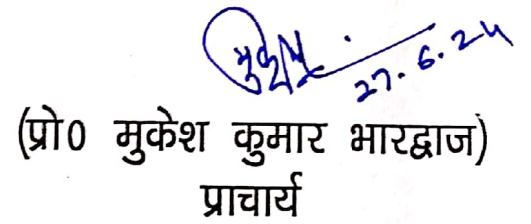 27.6.24
(प्रो0 मुकेश कुमार भारद्वाज)
प्राचार्य